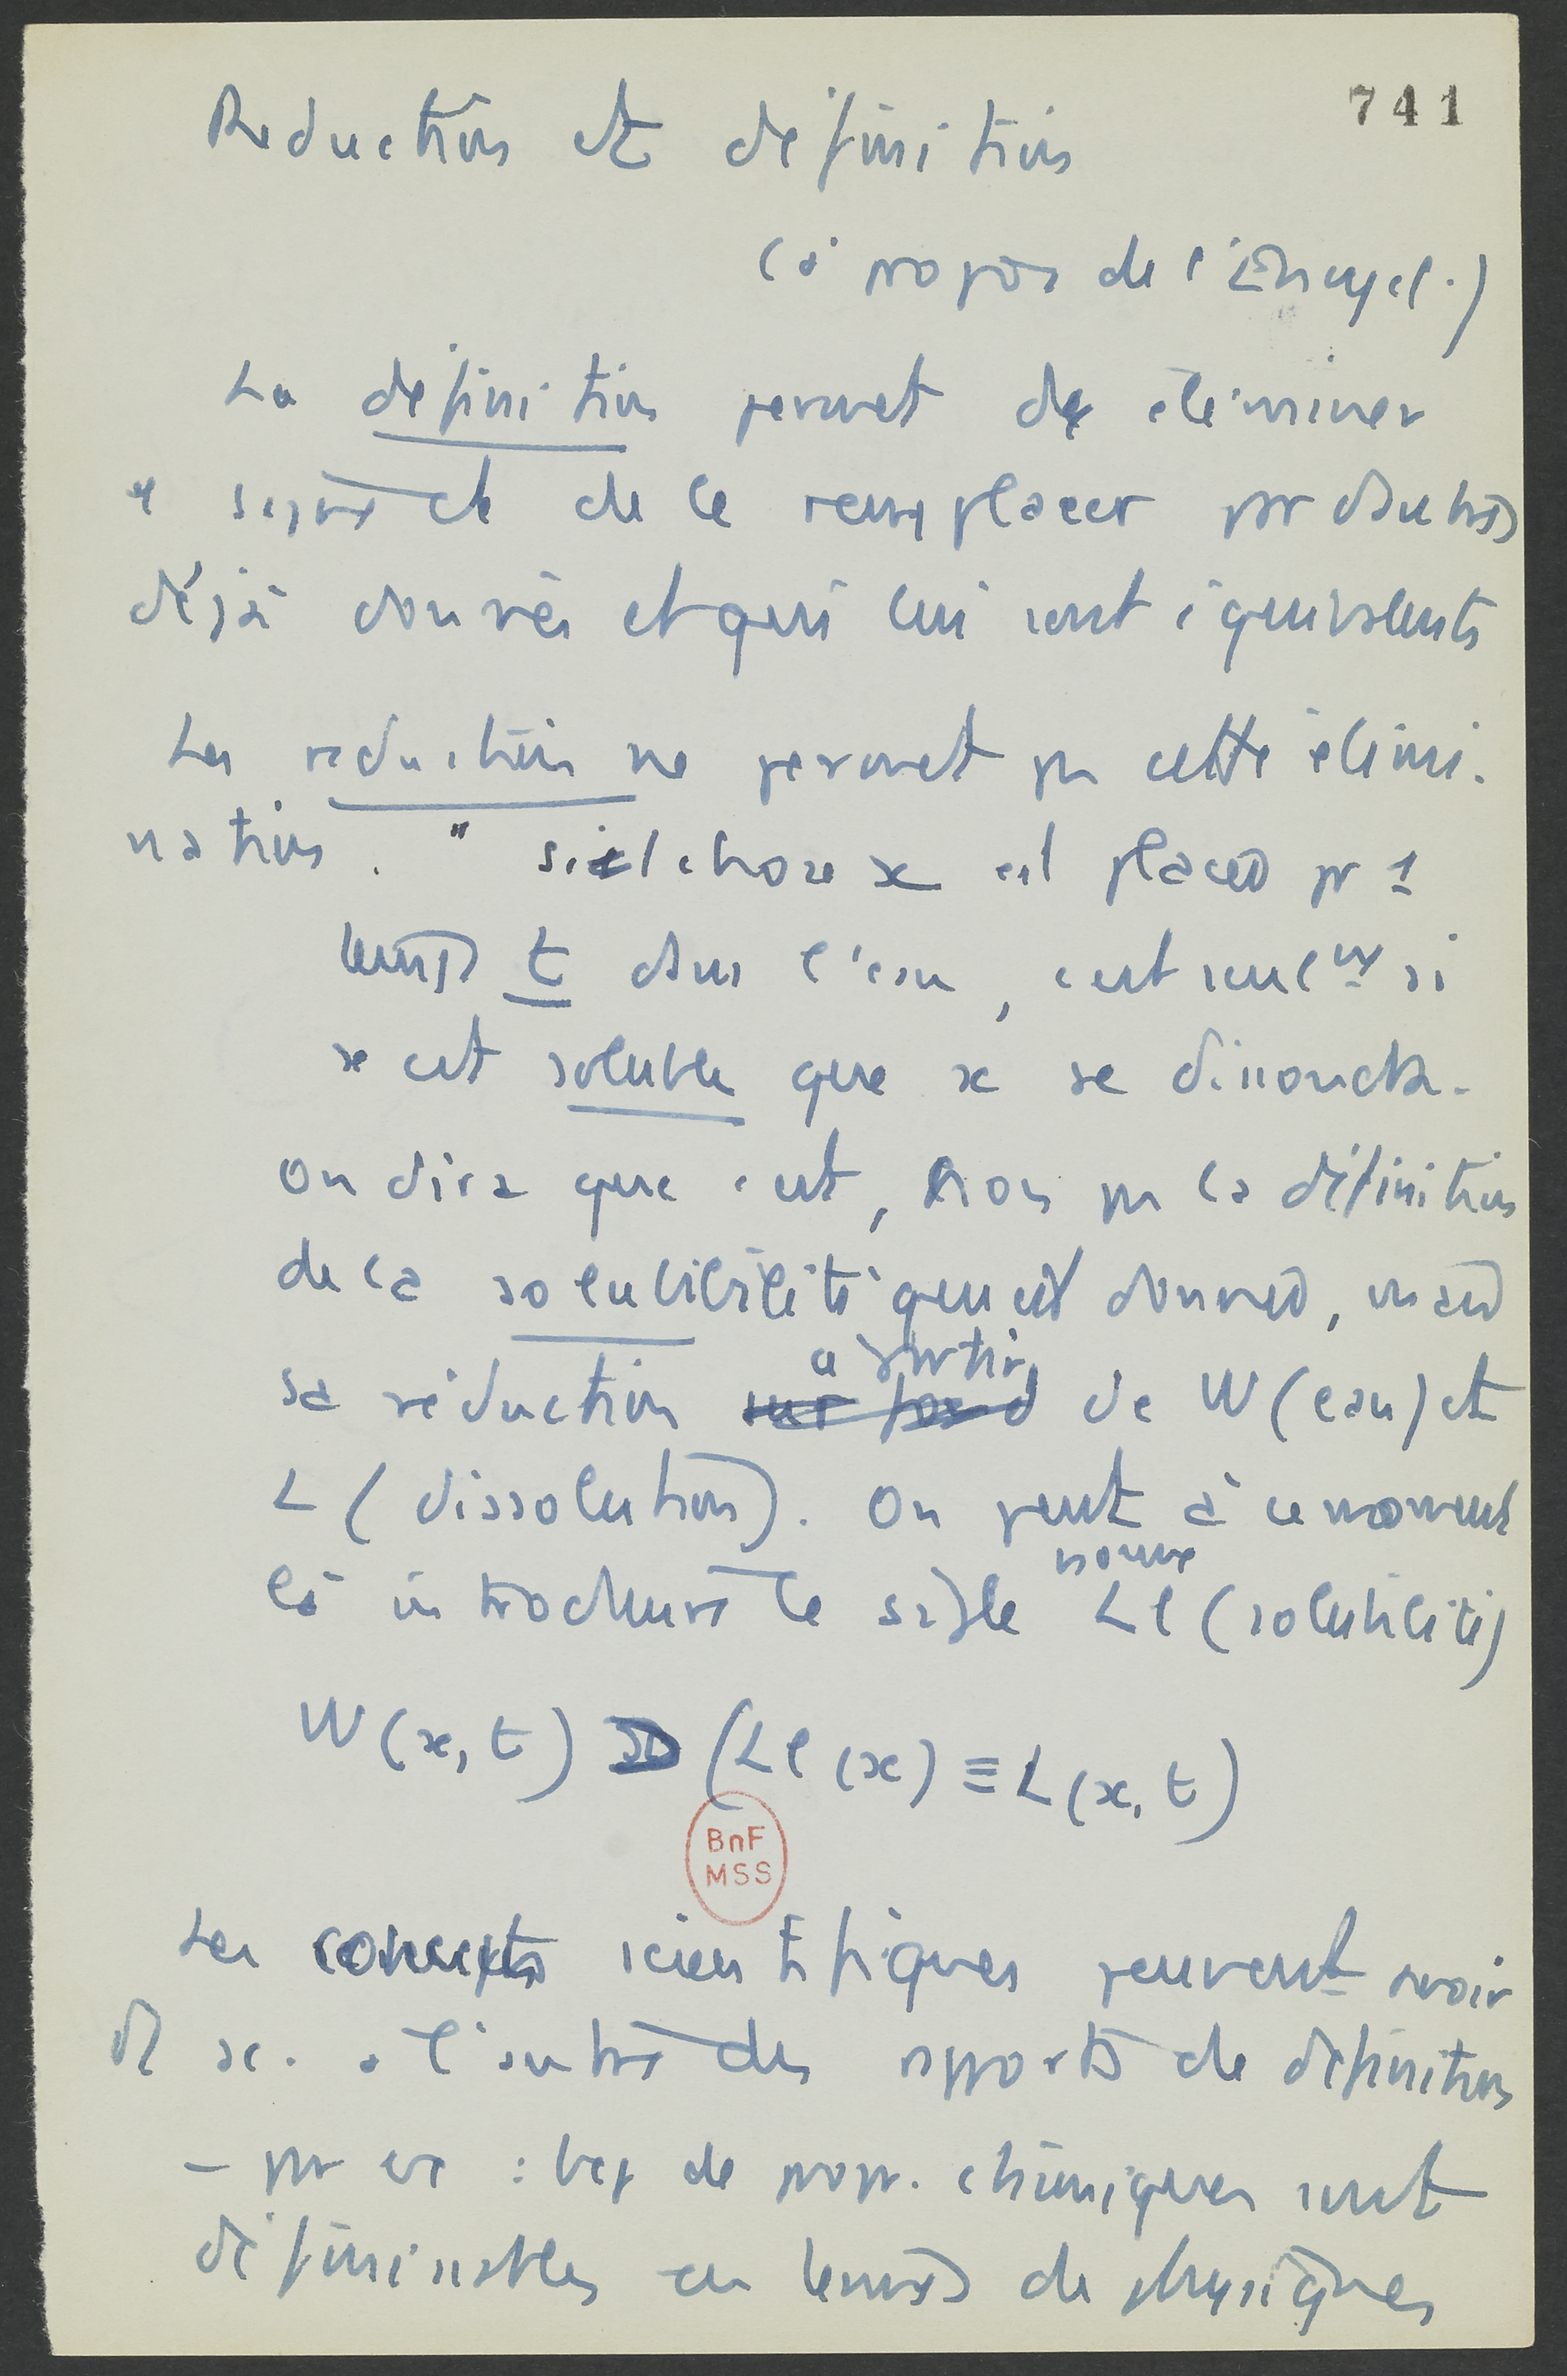 741
Reduction et definition
(à propos de l'Encycl.)
La definition permet de éliminer
signe et de le remplacer par d'autres
déjà donnés et qui lui sont équivalents
La reduction ne permet pas cette élimi-
nation. " si chose x est placée pr 1
temps t dans l'eau, c'est seulmt si
x est soluble que x se dissoudra.
On dira que c'est, non pas la définition
de la solubibilité qui est donnée, mais
sa réduction à partir de W (eau) et
L (dissolution). On peut à ce moment
là introduire le symbole nouveau Ll (solubilité)
W(x, t) ⊃ (Ll (x) ≡ L(x, t)
BnF
MSS
Les concepts scientifiques peuvent avoir
sc. à l'autre des rapports de définition
– par ex : bcp de propr. chimiques sont
définissables en termes de physiques